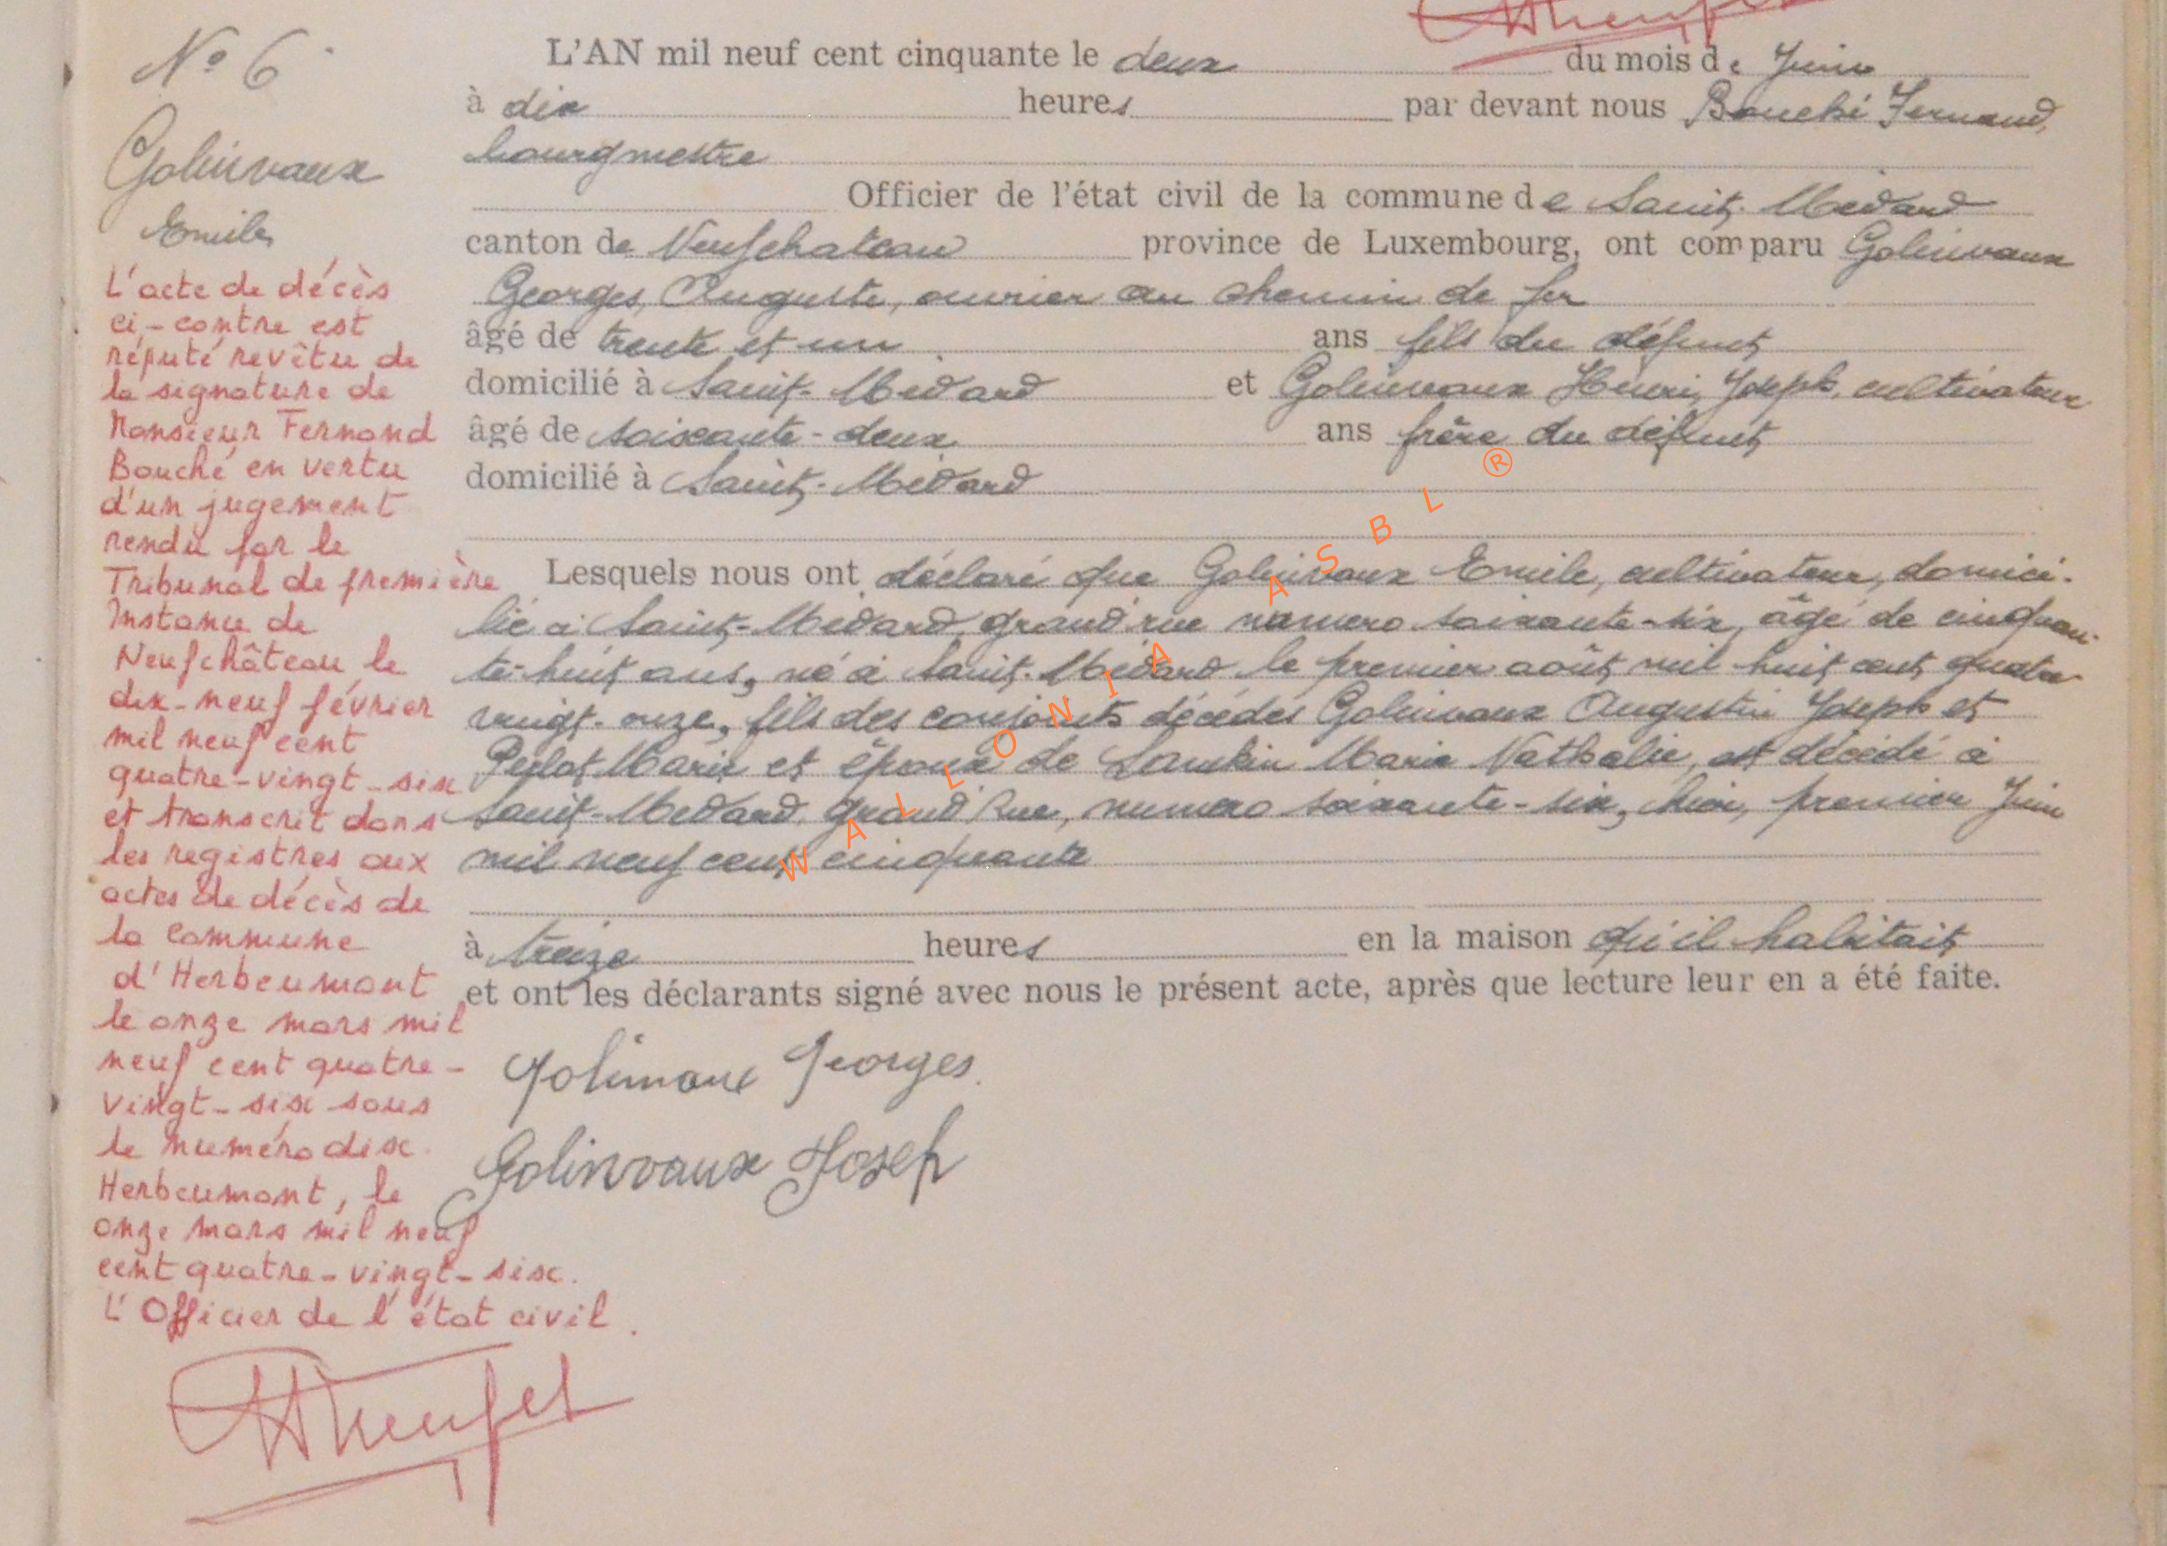 N° 6
Golinvaux
Emile
L'acte de décès
ci-contre est
réputé revêtu de
la signature de
Monsieur Fernand
Bouché en vertu
d'un jugement
rendu par le
Tribunal de première
Instance de
Neufchâteau le
dix-neuf février
mil neuf cent
quatre-vingt-six
et transcrit dans
les registres aux
actes de décès de
la Commune
d'Herbeumont
le onze mars mil
neuf cent quatre-
vingt-six sous
le numéro dix.
Herbeumont, le
onze mars mil neuf
cent quatre-vingt-six.
L'Officier de l'état civil.
L'AN mil neuf cent cinquante le deux du mois de Juin
à dix heures par devant nous Bouché Fernand,
bourgmestre
Officier de l'état civil de la commune de Saint-Médard
canton de Neufchateau province de Luxembourg, ont comparu Golinvaux
Georges, Auguste, ouvrier au chemin de fer
âgé de trente et un ans fils du défunt
domicilié à Saint-Médard et Golinvaux Henri, Joseph, cultivateur
âgé de soixante-deux ans frère du défunt
domicilié à Saint-Médard
Lesquels nous ont déclaré que Golinvaux Emile, cultivateur, domici-
lié à Saint-Médard, grand'rue numero soixante-six, âgé de cinquan-
te-huit ans, né à Saint-Médard le premier août mil huit cent quatre-
vingt-onze, fils des conjoints décédés Golinvaux Augustin Joseph et
Marie et époux de Marie Nathalie, est décédé à
Saint-Médard, Grand'Rue, numero soixante-six, hier, premier Juin
mil neuf cent cinquante
à treize heures en la maison qu'il habitait
et ont les déclarants signé avec nous le présent acte, après que lecture leur en a été faite.
Golinvaux Georges.
Golinvaux Joseph
WALLONIA ASBL ®